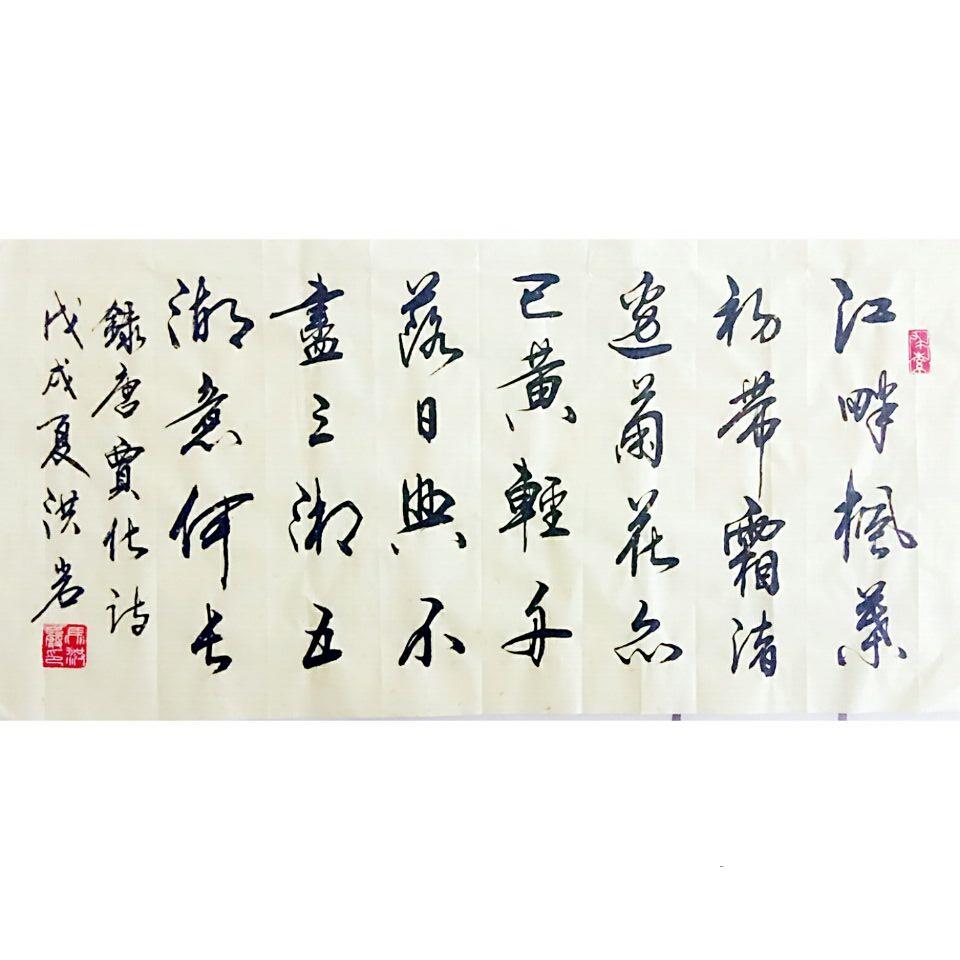 江畔楓葉
初帶霜渚
邊菊花亦
已黄輕舟
落日興不
盡三湘五
湖意何長
錄唐賈詩
戊戌夏洪岩